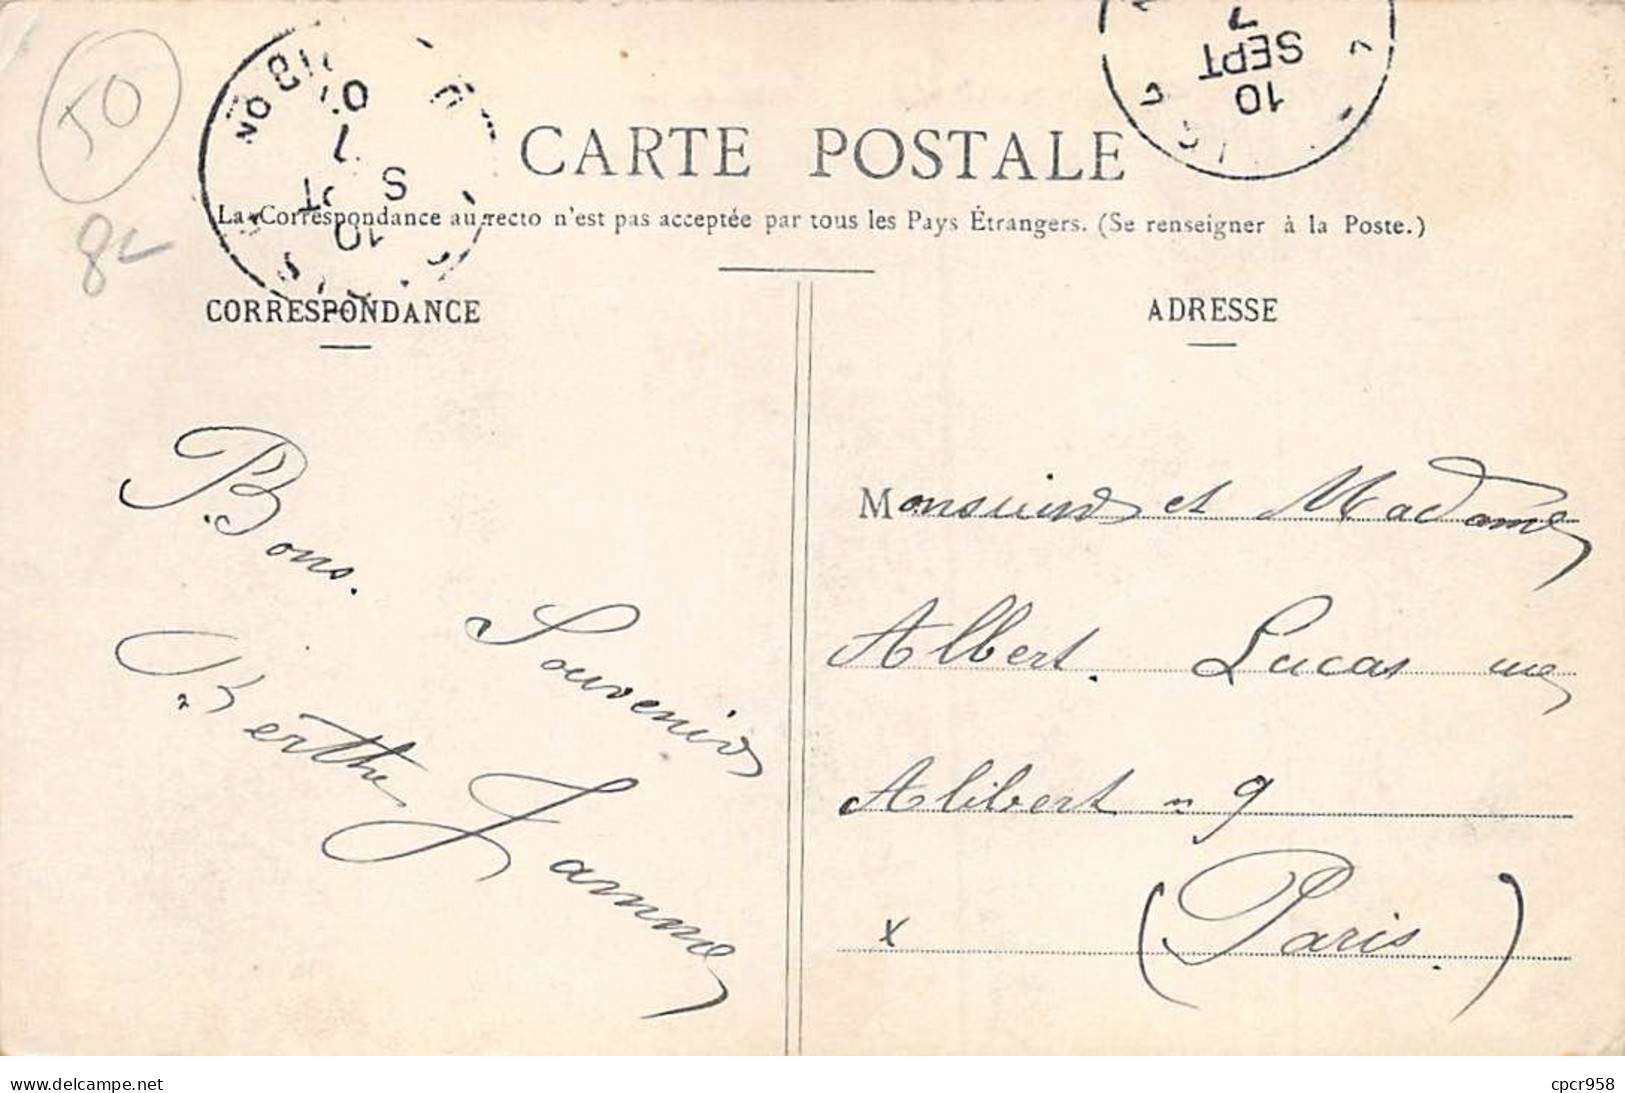 50
8
10
SEPT
7
CARTE POSTALE
La Correspondance au recto n'est pas acceptée par tous les Pays Étrangers. (Se renseigner à la Poste.)
CORRESPONDANCE
ADRESSE
Bons
Souvenirs
Berthe Jamme
Monsieur et Madame
Albert Lucas rue
Alibert n 9
x (Paris.)
delcampe.net
cpcr958